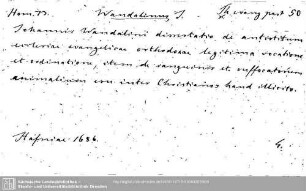 Hom. 73. Wandalinus J. 50
Johannis Wandalini dissertatio de antistitum
ecclesiae evangelicae orthodoxae legitima vocatione
et ordinatione, item de sanguinis et suffocatorum
animalium esu inter Christianos haud illicito.
Hafniae 1686. 4.
Sächsische Landesbibliothek -
Staats- und Universitätsbibliothek Dresden